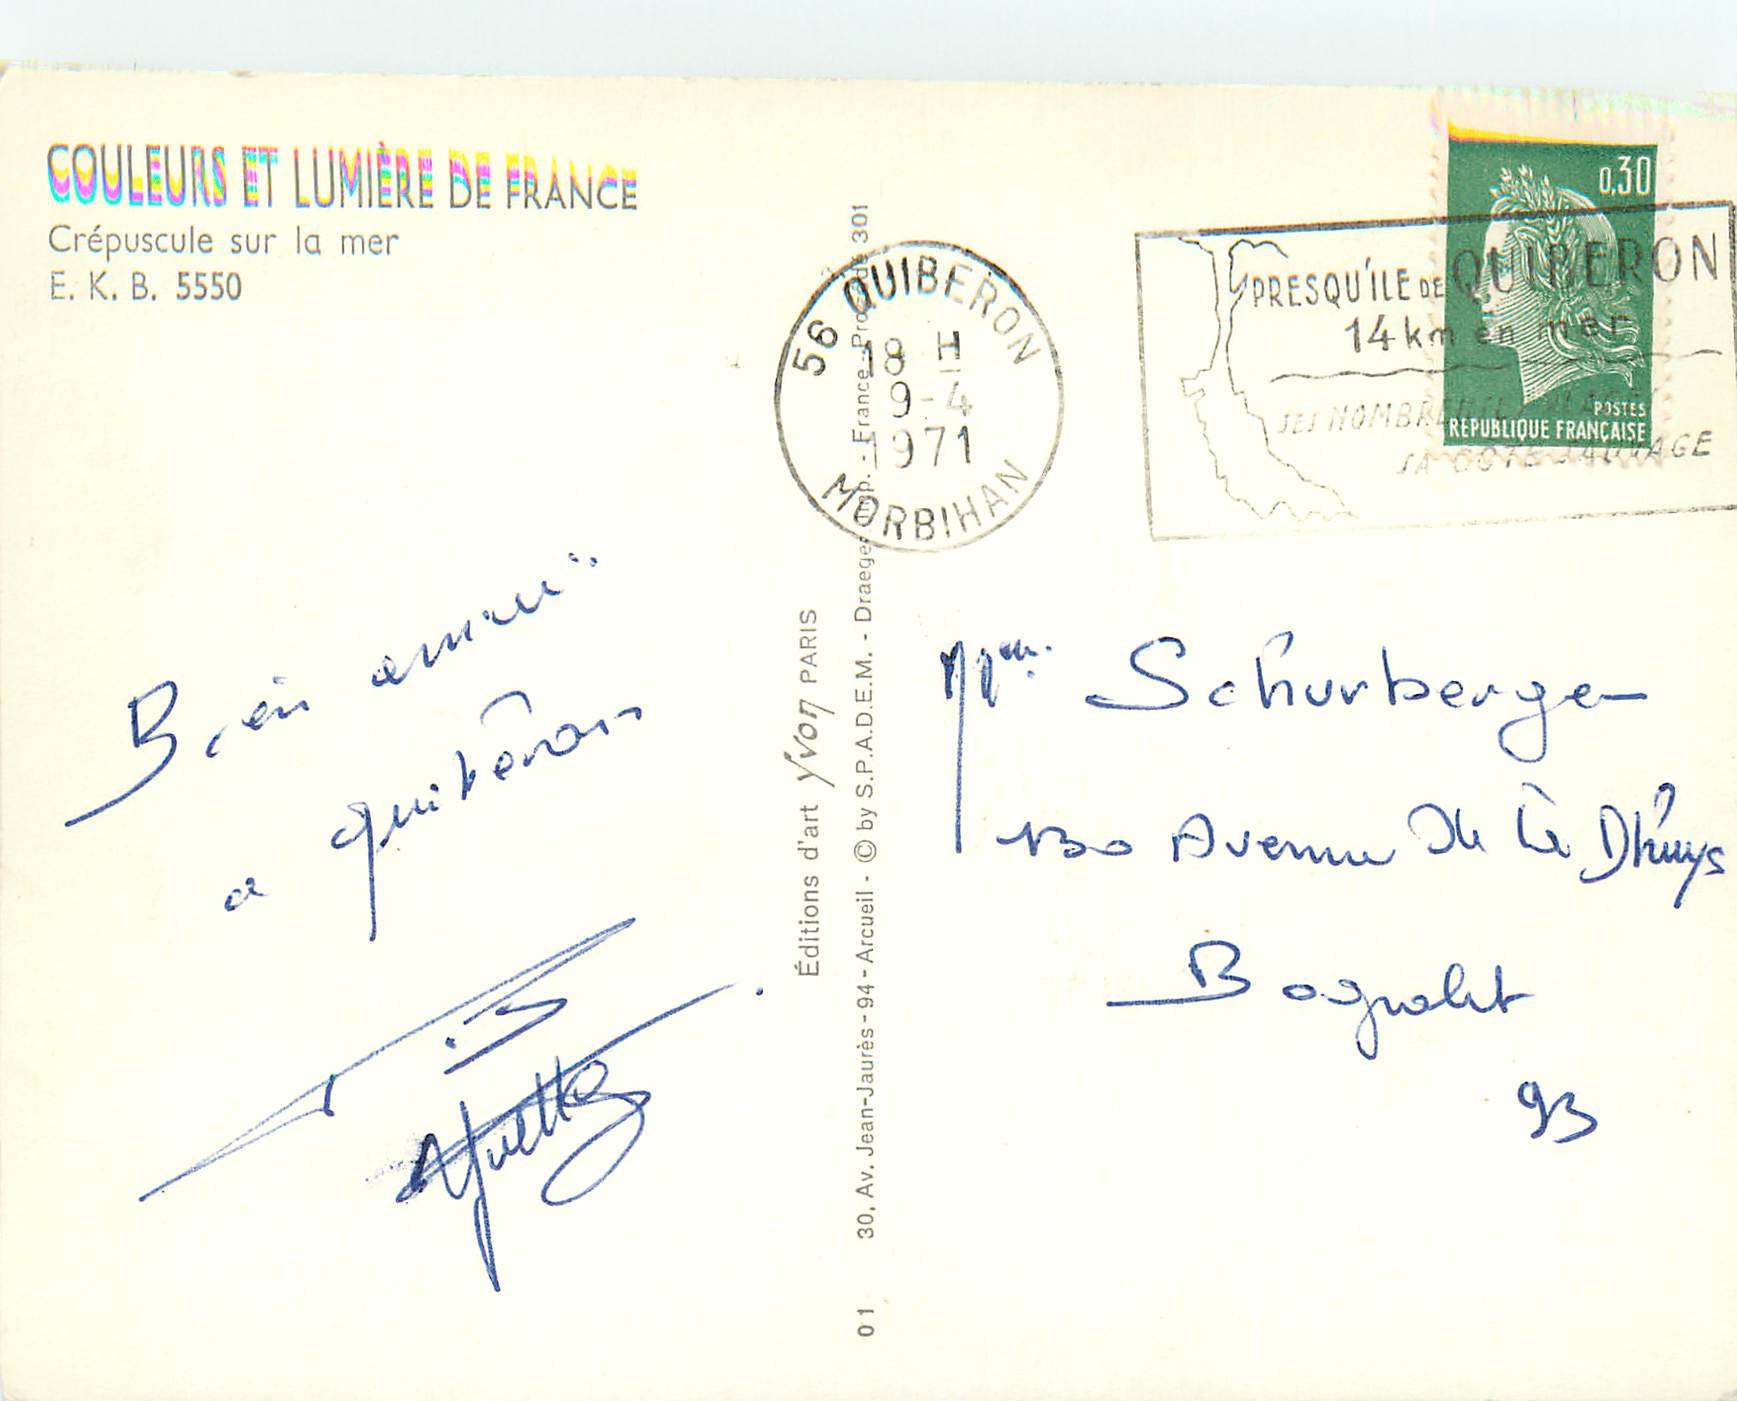 COULEURS ET LUMIÈRE DE FRANCE
Crépuscule sur la mer
E. K. B. 5550
Bien
a quiberon
Yvette
Éditions d'art Yvon PARIS
30, Av. Jean-Jaurès - 94 - Arcueil - © by S.P.A.D.E.M. - Draeger Imp. - France - 301
01
56 QUIBERON
18 H
9-4
1971
MORBIHAN
PRESQU'ÎLE DE QUIBERON
14 km en mer
SA COTE SAUVAGE
0,30
POSTES
REPUBLIQUE FRANÇAISE
Mme Schurberger
130 Avenue de la Dhuys
Bagnolet
93